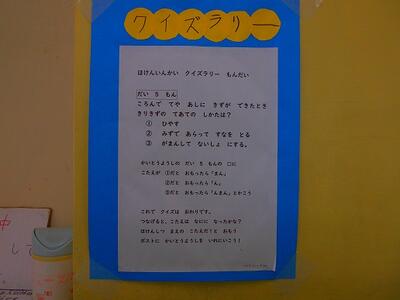 クイズラリー
ほけんいんかい クイズラリー もんだい
だい 5 もん
ころんで てや あしに きずが できたとき
きりきずの てあての しかたは？
① ひやす
② みずで あらって すなを とる
③ がまんして ないしょ にする。
かいとうようしの だい 5 もんの □に
こたえが ①だと おもったら「まん」
②だと おもったら「ん」
③だと おもったら「んまん」とかこう
これで クイズは おわりです。
つなげると、こたえは なにに なったかな？
ほけんしつ まえの こたえだ！と おもう
ポストに かいとうようしを いれにいこう！
中
して